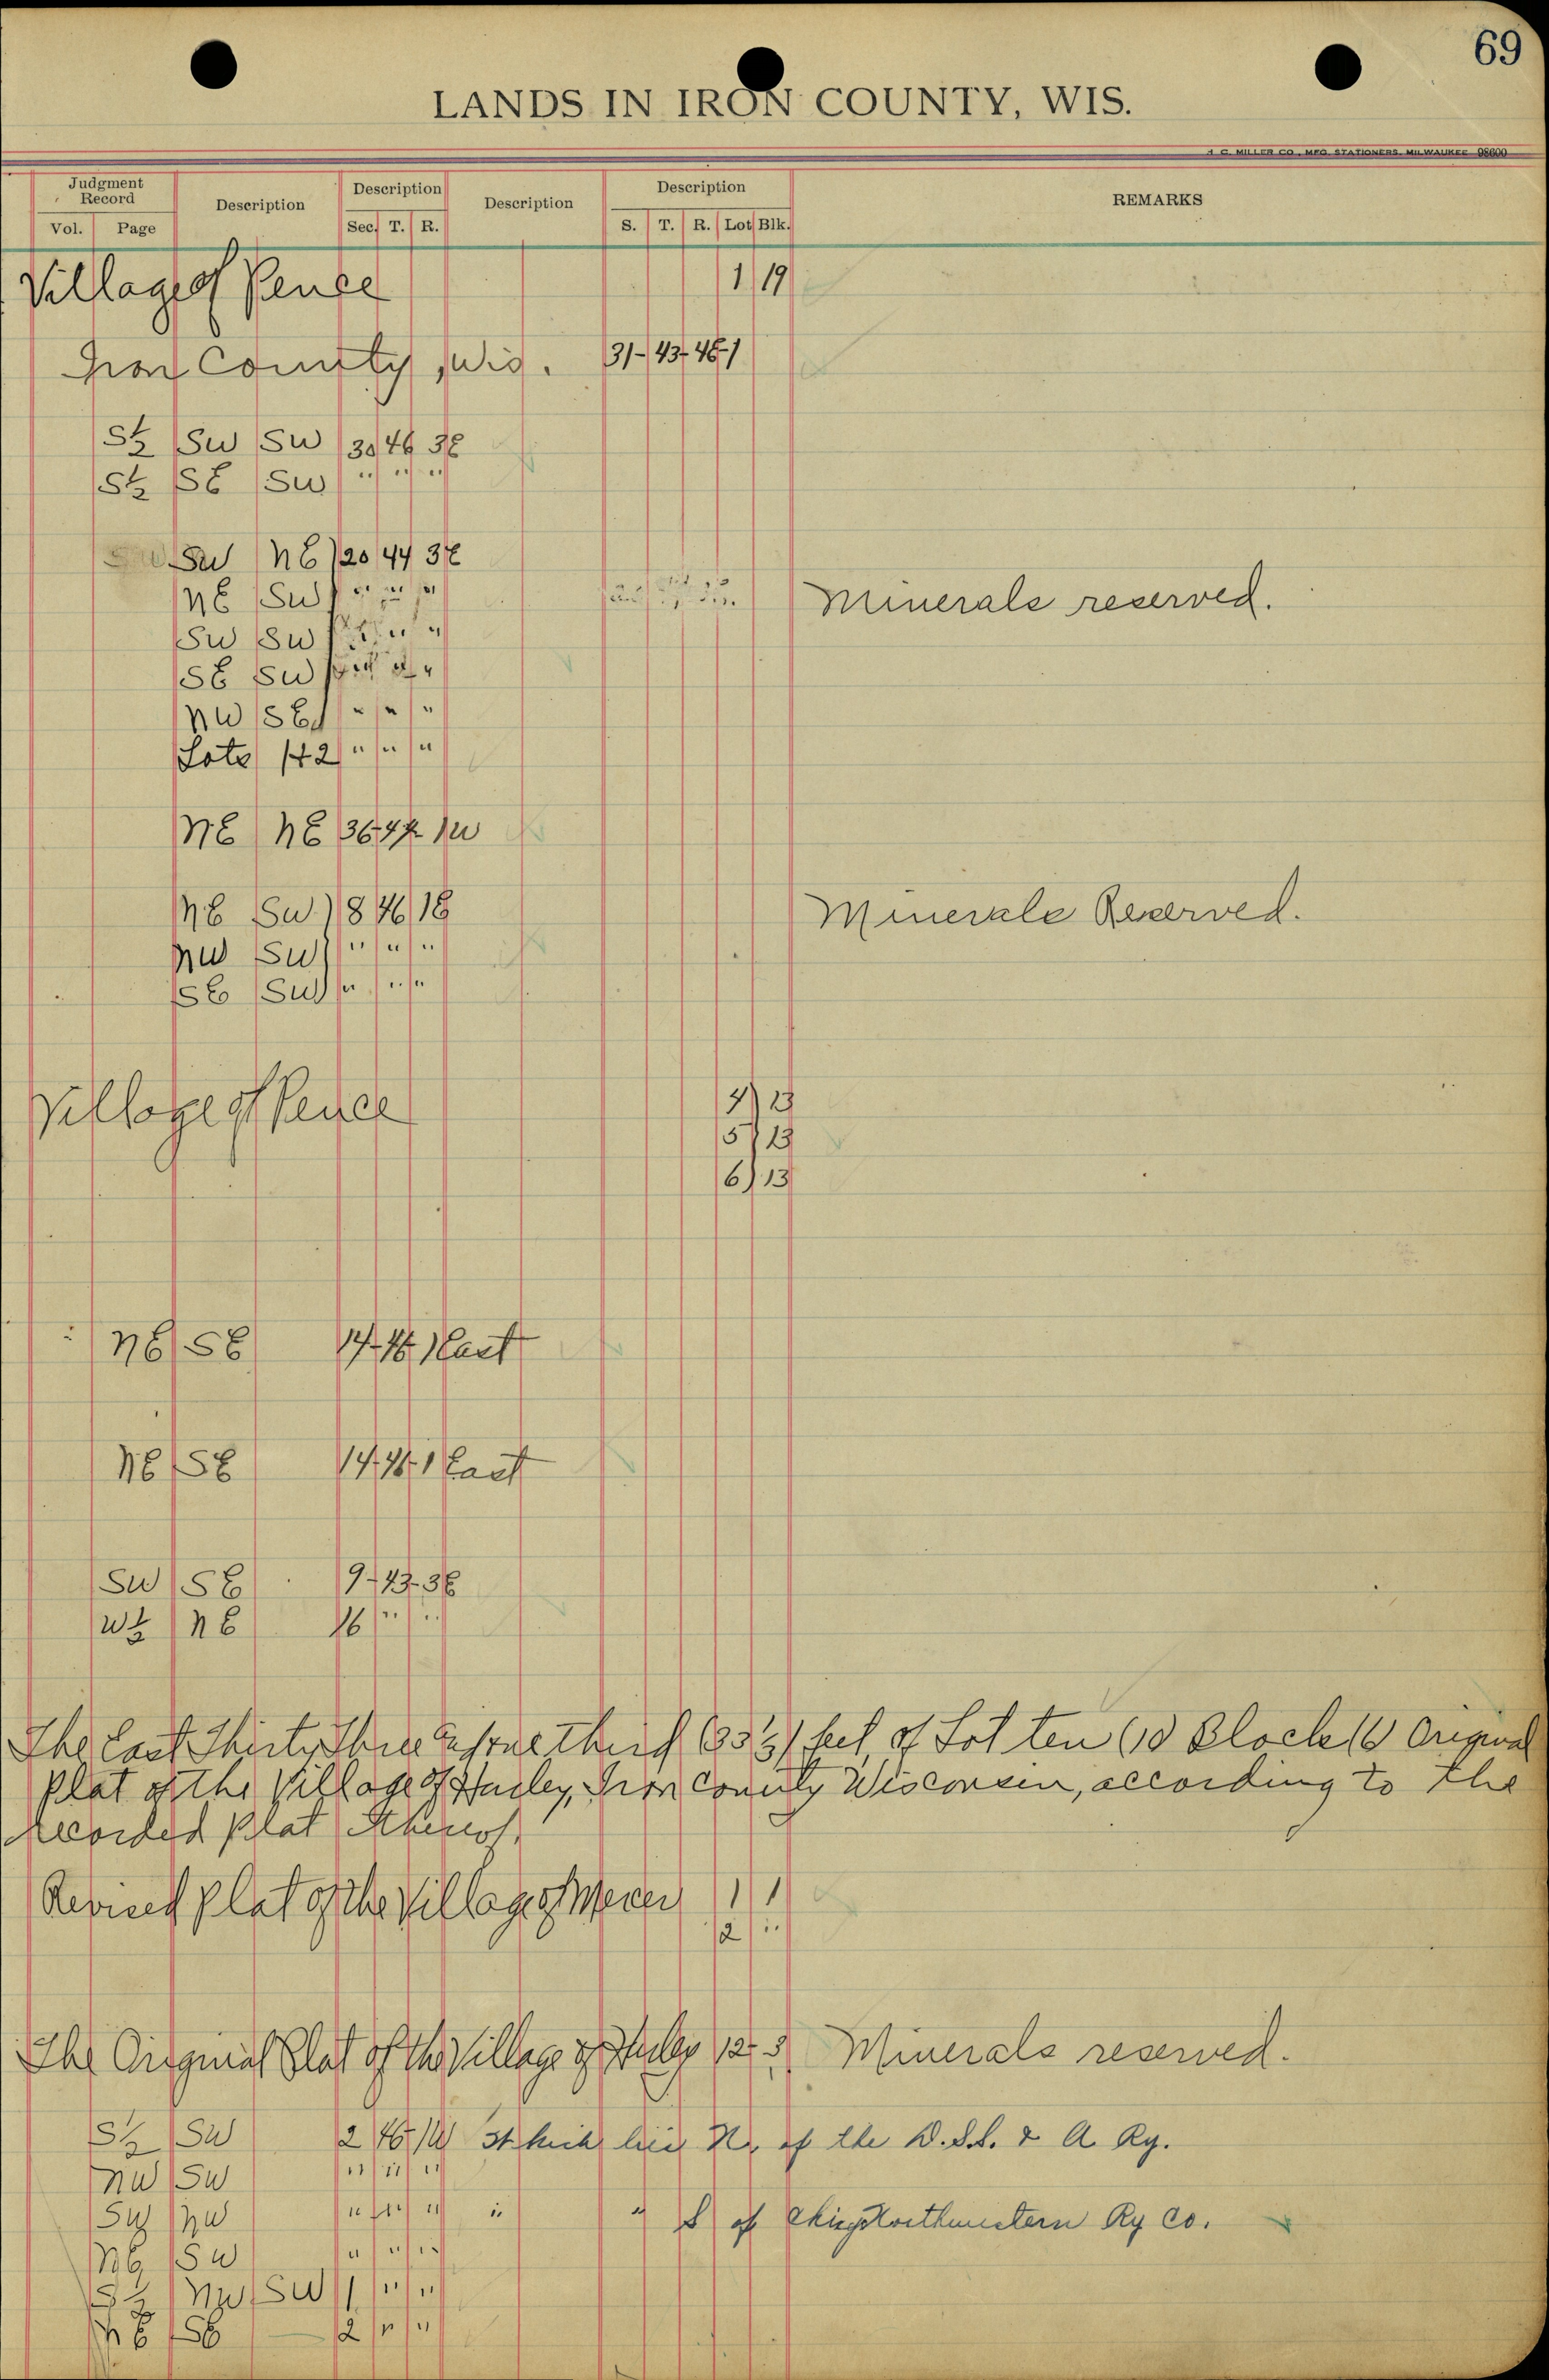 69
LANDS IN IRON COUNTY, WIS.
H. C. MILLER CO., MFG. STATIONERS, MILWAUKEE 98600
Judgment Record Description Description Description Description REMARKS
Vol. Page Sec. T. R. S. T. R. Lot Blk.
Village of Pence 1 19
Iron County, Wis. 31-43-46-1
S½ SW SW 30 46 3E
S½ SE SW " " "
SW NE 20 44 3E
NE SW " " " Minerals reserved.
SW SW " " "
SE SW " " "
NW SE " " "
Lots 1+2 " " "
NE NE 36 44 1W
NE SW 18 46 1E Minerals Reserved.
NW SW " " "
SE SW " " "
Village of Pence 4 13
5 13
6 13
NE SE 14-46-1 East
NE SE 14-46-1 East
SW SE 9-43-3E
W½ NE 16 " "
The East Thirty Three & one third (33⅓) feet, of Lot ten (10 Block 16 Original
Plat of the Village of Hurley, Iron County Wisconsin, according to the
recorded plat thereof.
Revised plat of the Village of Mercer 1 1
2 "
The Original Plat of the Village of Hurley 12 3 Minerals reserved.
S½ SW 2 46 1W which lies N. of the D.S.S. & A Ry.
NW SW " " "
SW NW " " " " " S of Chicg Northwestern Ry Co.
NE SW " " "
S½ NW SW 1 " "
NE SE 2 " "